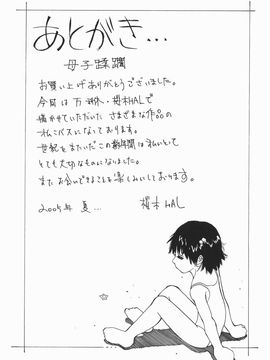 あとがき...
母子蹂躙
お買い上げありがとうございました。
今回は
描かせていただいた さまざまな作品の
になっております。
世紀をまたいだこの 数年間は私にとって
とても大切なものになりました。
またお会いできることを楽しみにしております。
2005年 夏...
HAL